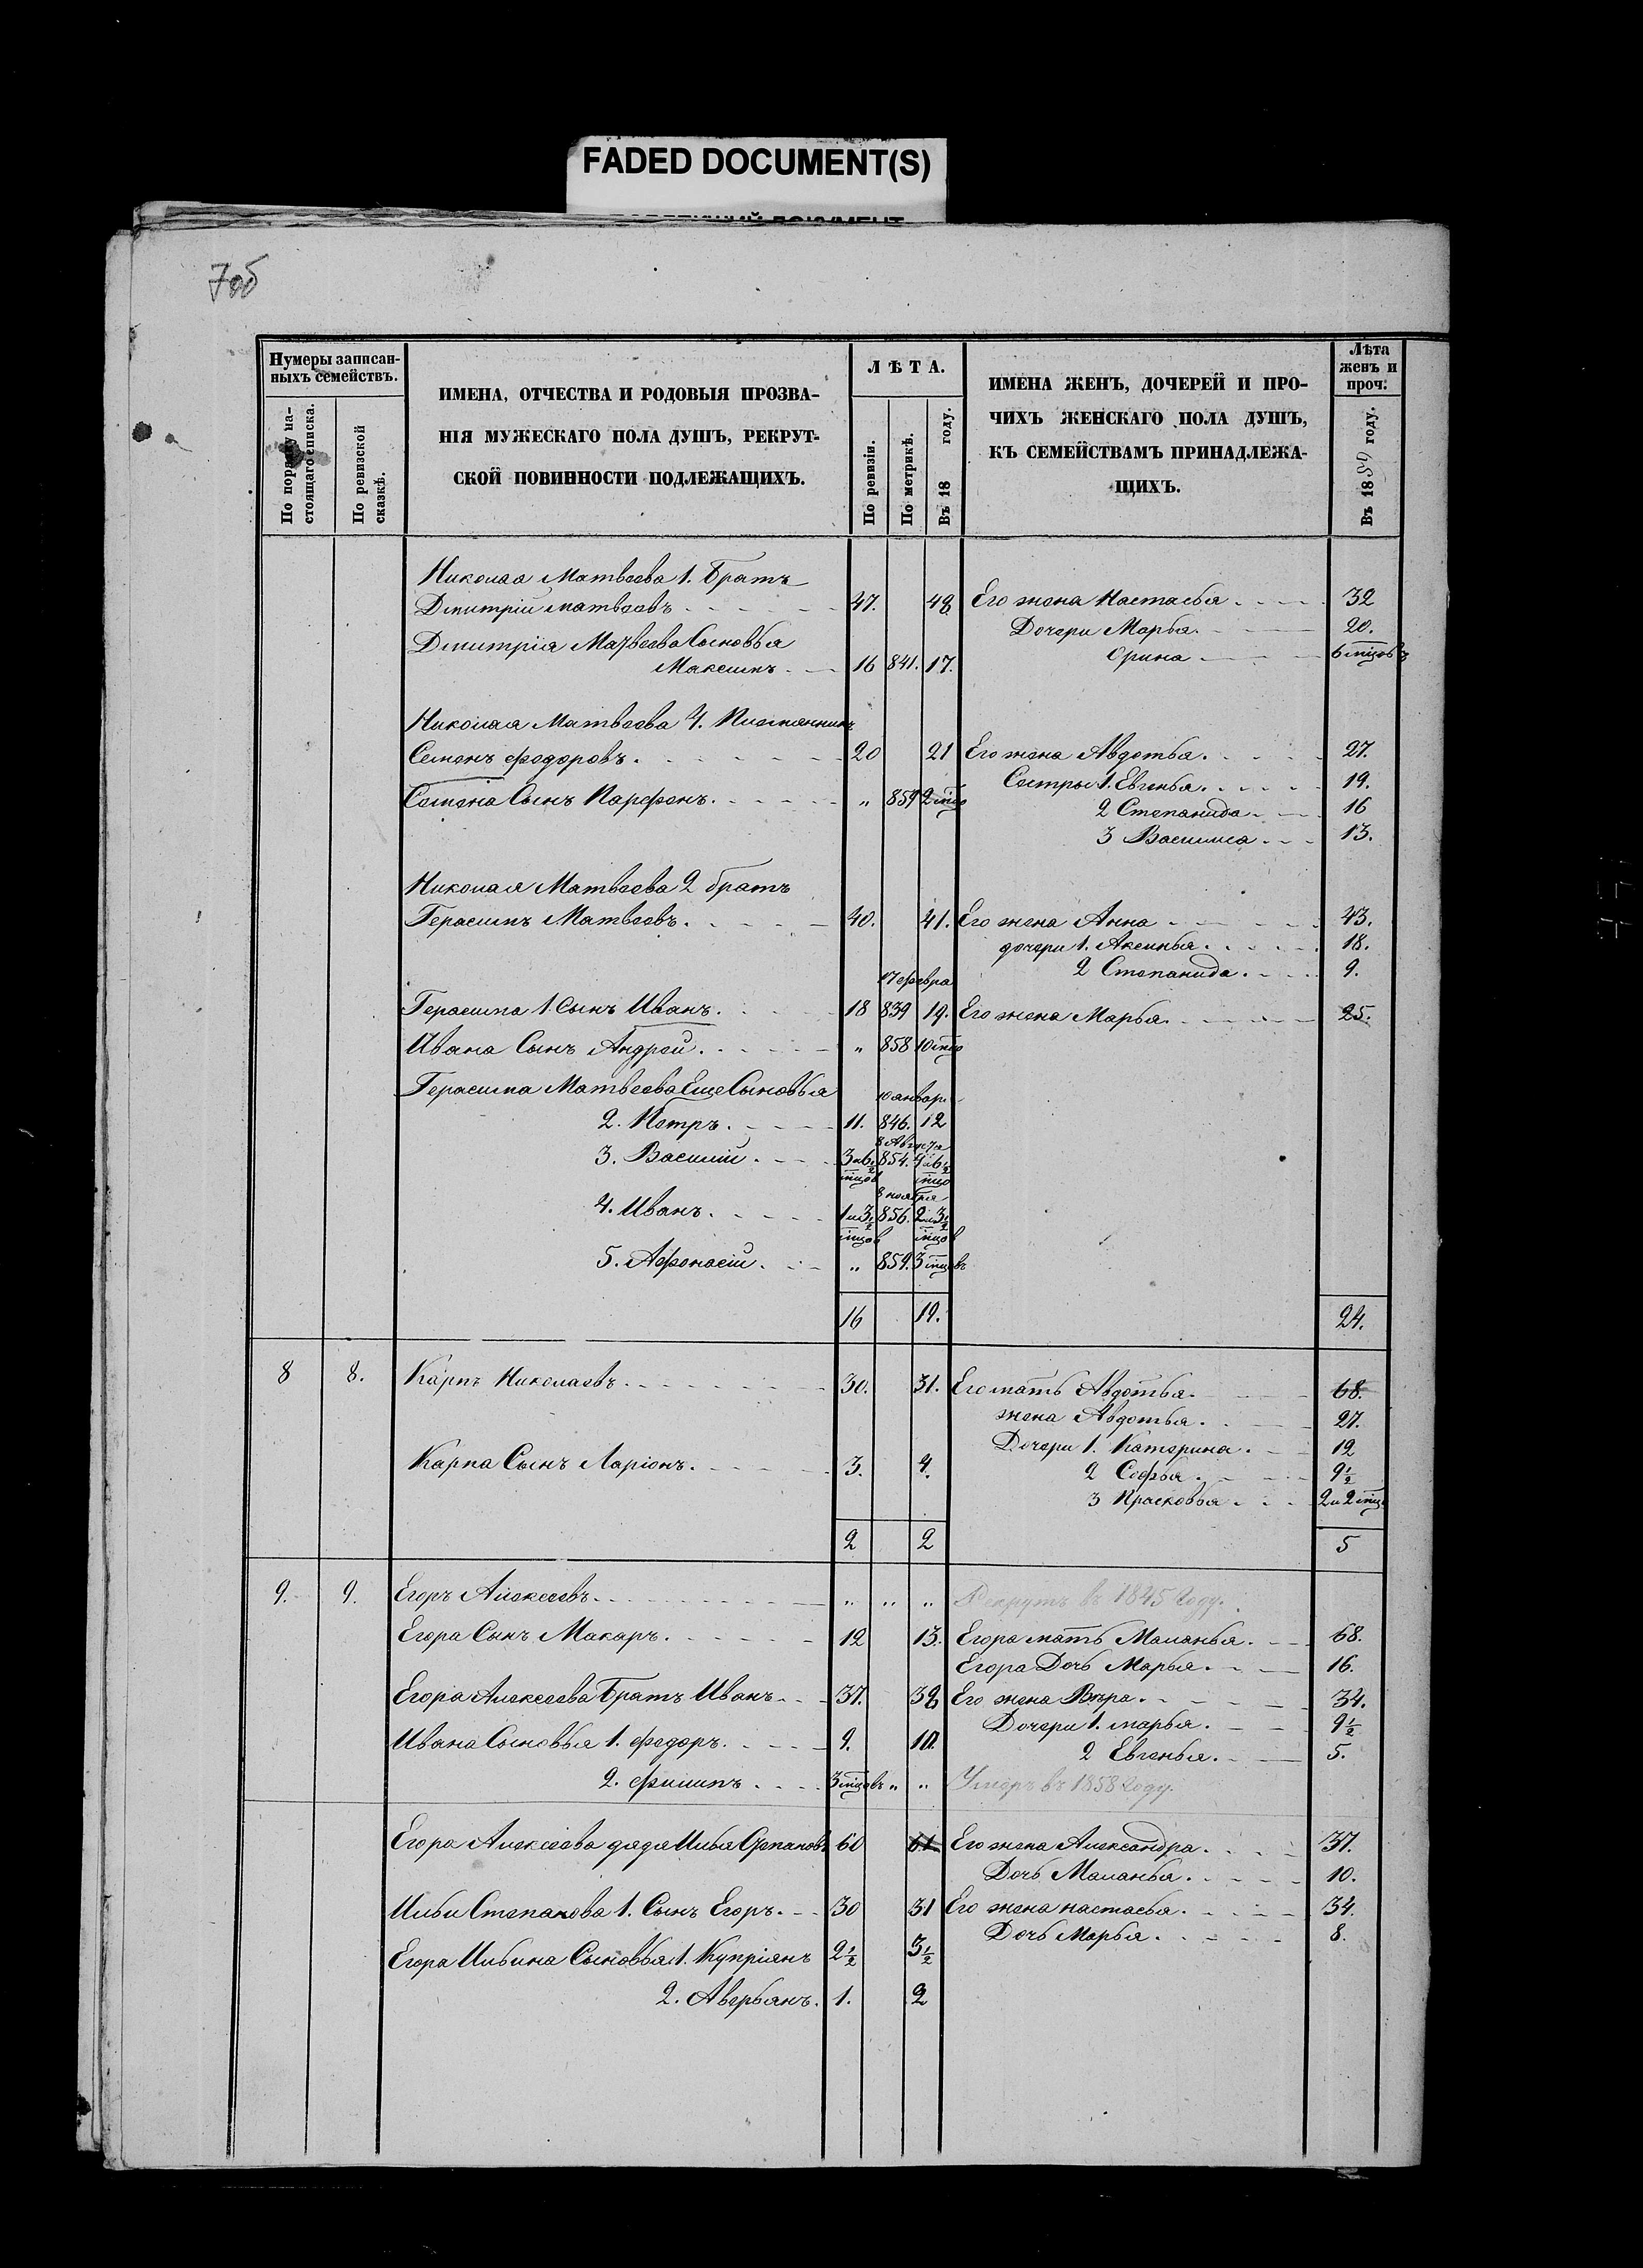 FADED DOCUMENT(S)
7об
Нумеры записан-
ныхъ семействъ.
По порядку на-
стоящаго списка.
По ревизской
сказкѣ.
ИМЕНА, ОТЧЕСТВА И РОДОВЫЯ ПРОЗВА-
НІЯ МУЖЕСКАГО ПОЛА ДУШЪ, РЕКРУТ-
СКОЙ ПОВИННОСТИ ПОДЛЕЖАЩИХЪ.
ЛѢТА.
По ревизіи.
По метрикѣ.
Въ 18 году.
ИМЕНА ЖЕНЪ, ДОЧЕРЕЙ И ПРО-
ЧИХЪ ЖЕНСКАГО ПОЛА ДУШЪ,
КЪ СЕМЕЙСТВАМЪ ПРИНАДЛЕЖА-
ЩИХЪ.
Лѣта
женъ и
проч:
Въ 1859 году.
Николая Матвеева 1. Братъ
Дмитрій матвеевъ 47. 48 Его жена Настасья 32
Дочери Марья 20.
Дмитрія Матвеева Сыновья
Орина 6 мцовъ
Максимъ 16 841. 17.
Николая Матвеева 4. Племянникъ
Семенъ федоровъ 20 21 Его жена Авдотья 27.
Сестры 1. Евгенья 19.
Семена Сынъ Парфенъ „ 859 2 мцо
2 Степанида 16
3 Василиса 13.
Николая Матвеева 2 братъ
Герасимъ Матвеевъ 40. 41. Его жена Анна 43.
дочери 1. Аксинья 18.
2 Степанида 9.
17 февра
Герасима 1. Сынъ Иванъ 18 839 19. Его жена Марья 25.
Ивана Сынъ Андрей „ 858 10 мцо
Герасима Матвеева Еще Сыновья
10 январ
2. Петръ 11. 846. 12
8 Августа
3. Василий 3 и 6½ мцов 854. 4 и 6½ мцо
8 ноября
4. Иванъ 1 и 3½ мцов 856. 2 и 3½ мцов
5. Афонасій „ 859. 3 мцовъ
16 19. 24.
8 8. Карпъ Николаевъ 30. 31. Его мать Авдотья 68.
жена Авдотья 27.
Дочери 1. Катерина 12
Карпа Сынъ Ларіонъ 3. 4.
2 Софья 9½
3 Прасковья 2 и 2 мца
2 2 5
9. 9. Егоръ Алексеевъ „ „ „ Рекрутъ въ 1845 Году.
Егора Сынъ Макаръ 12 13. Егора мать Маланья 68.
Егора Дочь Марья 16.
Егора Алексеева Братъ Иванъ 37. 38 Его жена Вѣра 34.
Дочери 1. марья 9½
Ивана Сыновья 1. федоръ 9. 10.
2 Евгенья 5.
2. филипъ 3 мцовъ „ „ Умеръ въ 1858 Году.
Егора Алексеева дядя Илья Степановъ 60 61 Его жена Александра 37.
Дочь Маланья 10.
Ильи Степанова 1. Сынъ Егоръ 30 31 Его жена настасья 34.
Дочь Марья 8.
Егора Ильина Сыновья 1. Купріянъ 2½ 3½
2. Аверьянъ 1. 2